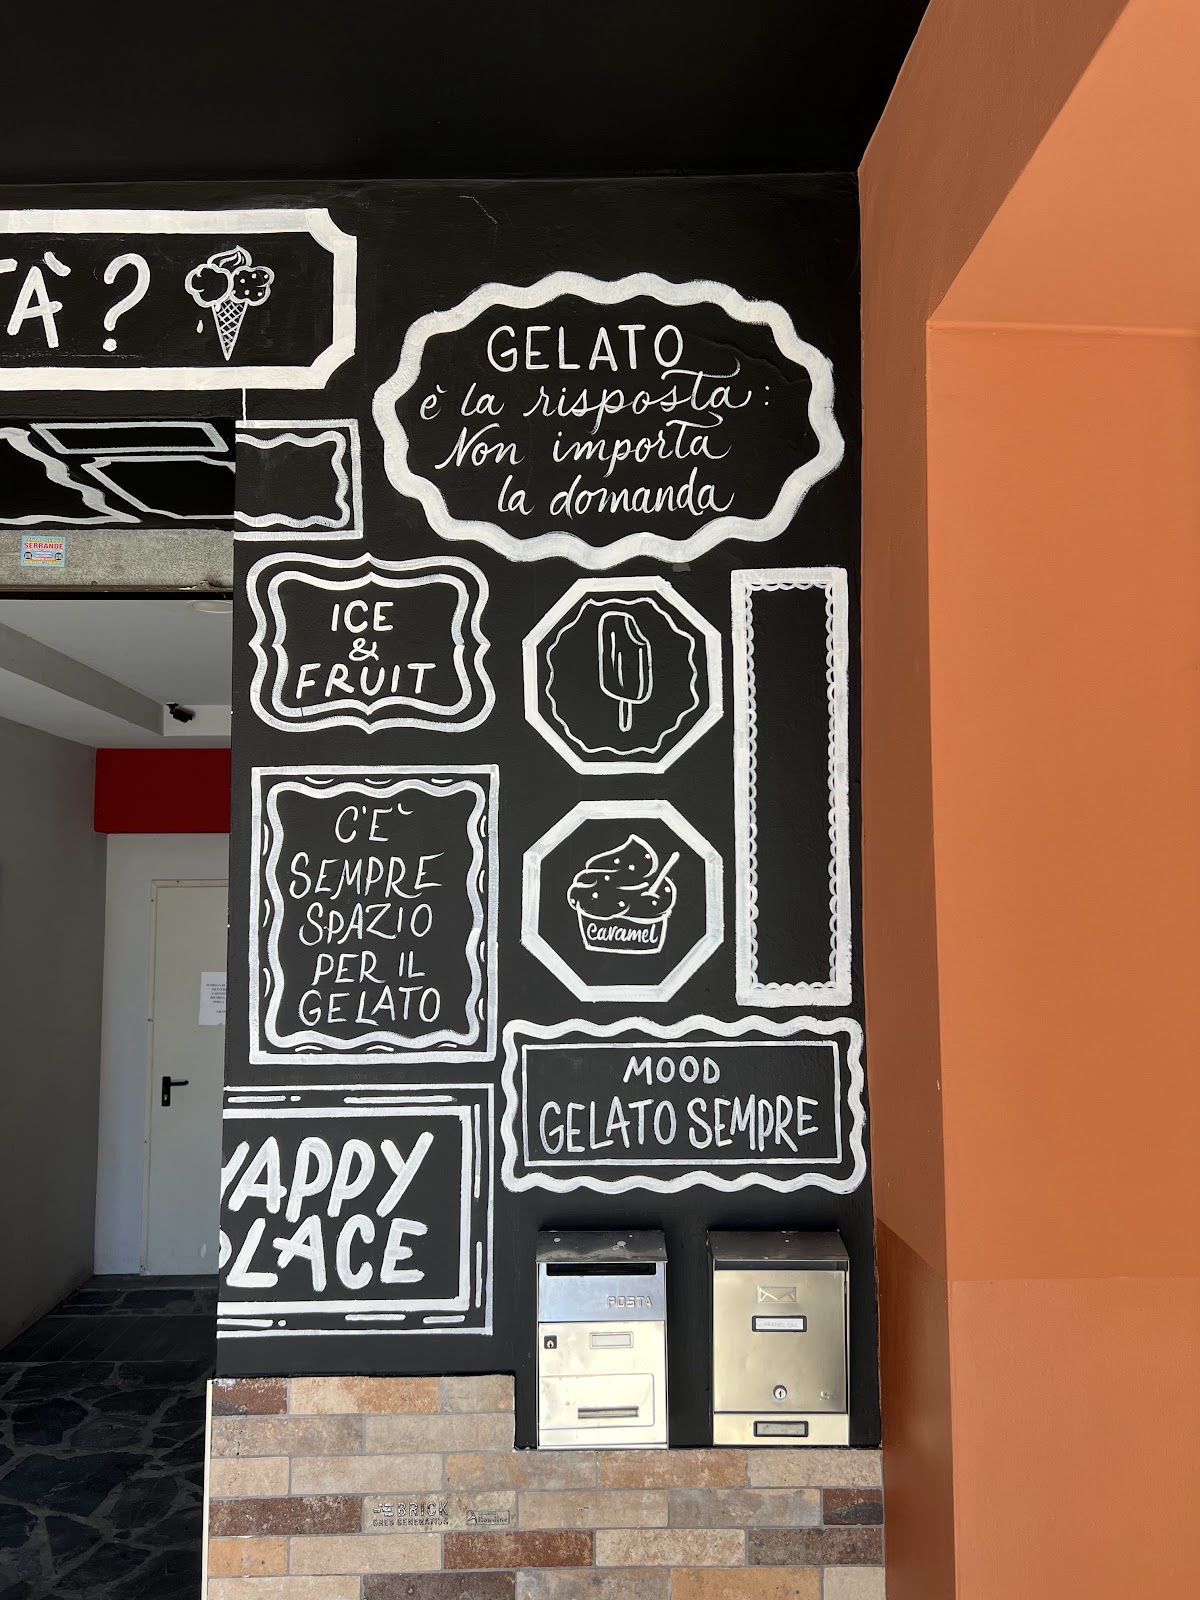 TÀ?
GELATO
è la risposta:
Non importa
la domanda
SERRANDE
ICE
&
FRUIT
C'È
SEMPRE
SPAZIO
PER IL
GELATO
caramel
MOOD
GELATO SEMPRE
APPY
LACE
POSTA
BRICK
GRES GENERATION